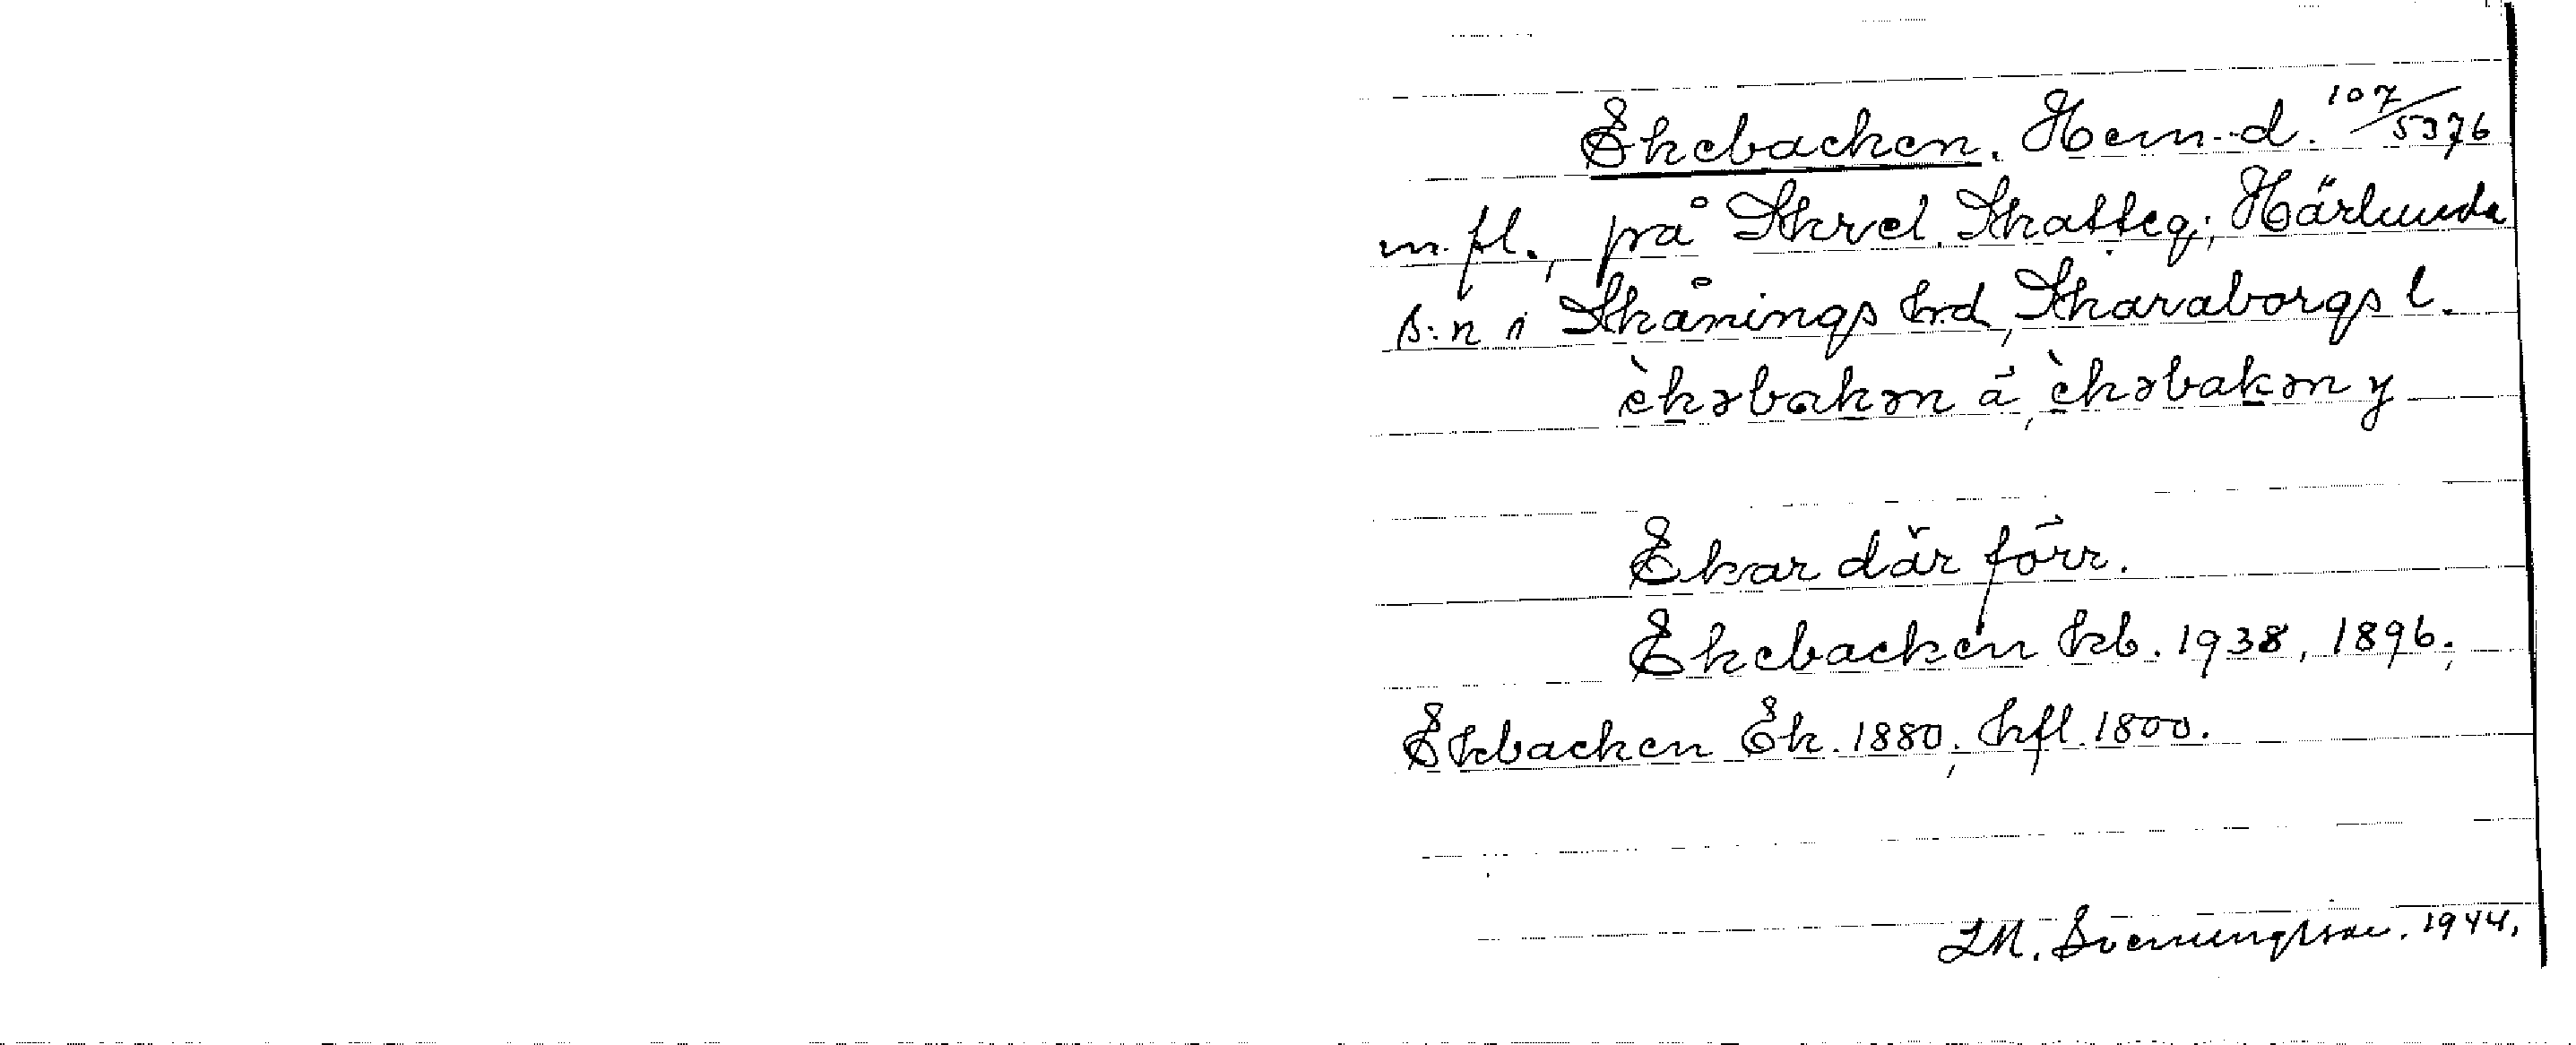 Ekebacken. Hem.-d. 107/5376
m. fl., på Skrel. Skatteg; Härlunda
s:n i Skånings hd, Skaraborgs l.
èkəbakən å, èkəbakən y
Ekar där förr.
Ekebacken kb. 1938, 1896;
Ekbacken Ek. 1880; hfl 1800.
I.M. Svenungsson. 1944.